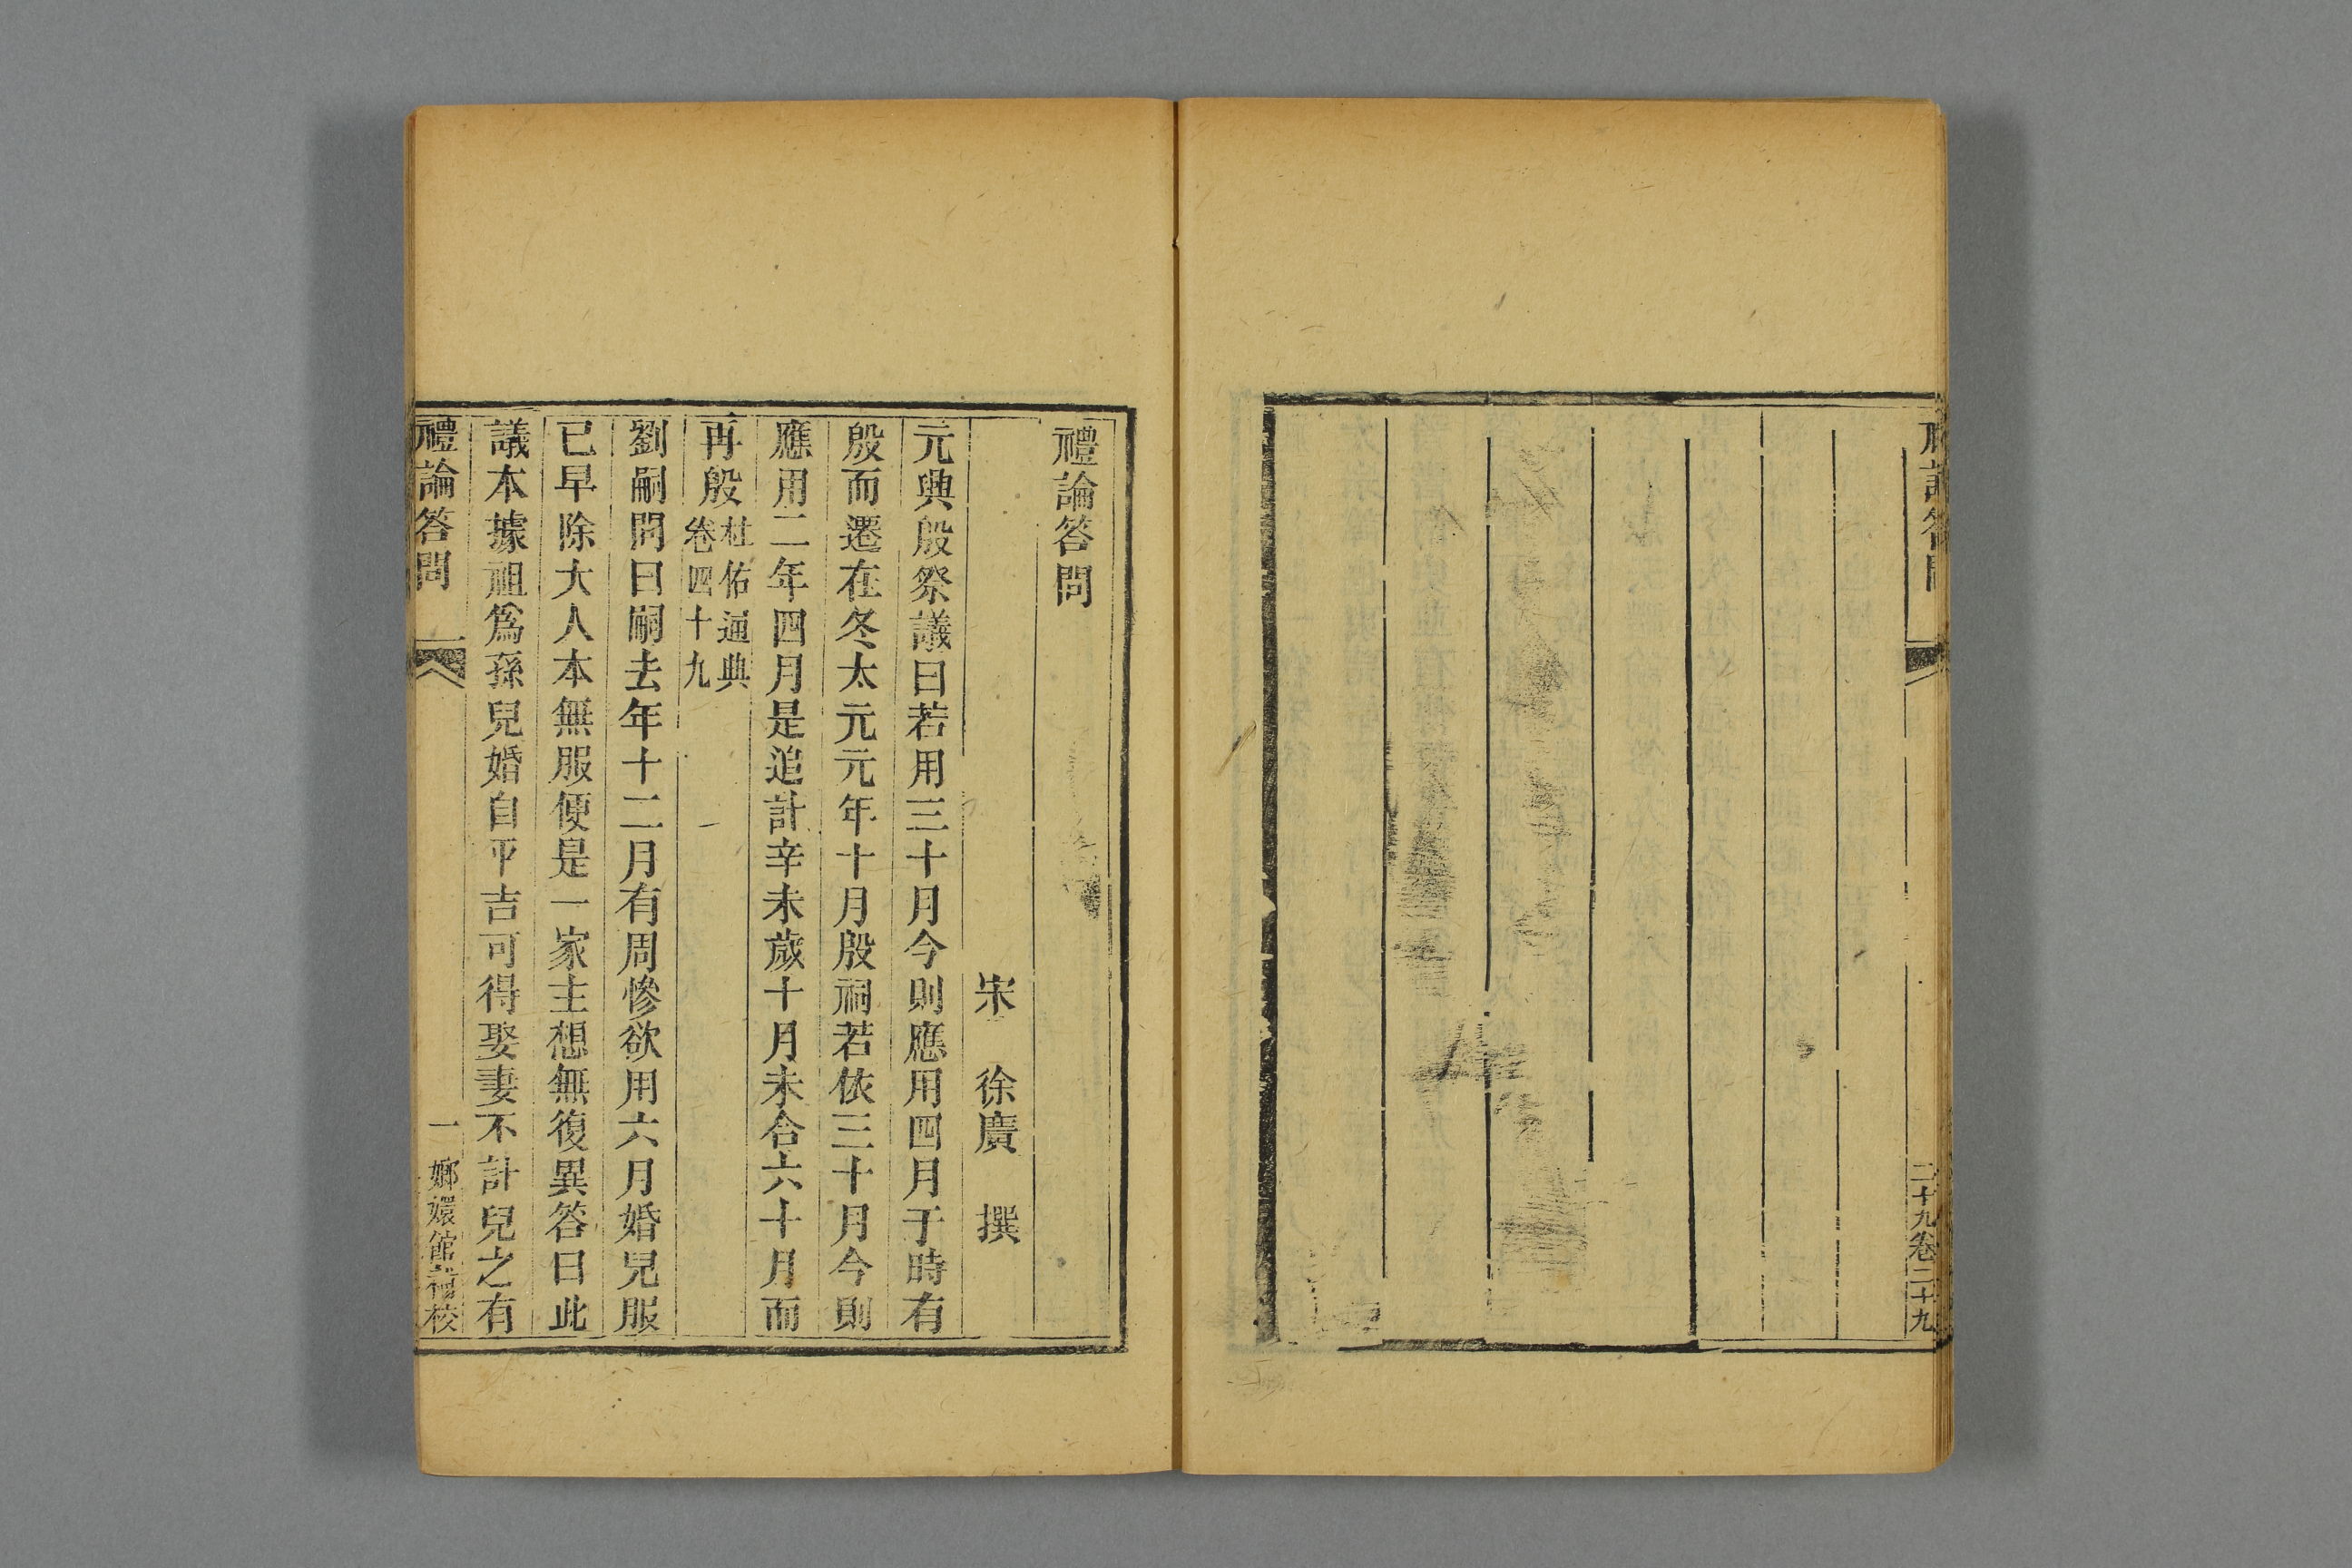 禮論答問
二十九卷二十九
禮論答問
宋　徐廣　撰
元興殷祭議曰若用三十月今則應用四月于時有
殷而遷在冬太元元年十月殷祠若依三十月今則
應用二年四月是追計辛未歲十月未合六十月而
再殷杜佑通典
卷四十九
劉嗣問曰嗣去年十二月有周慘欲用六月婚兒服
已早除大人本無服便是一家主想無復異答曰此
議本據祖爲孫兒婚自平吉可得娶妻不計兒之有
禮論答問
一
嫏嬛館補校